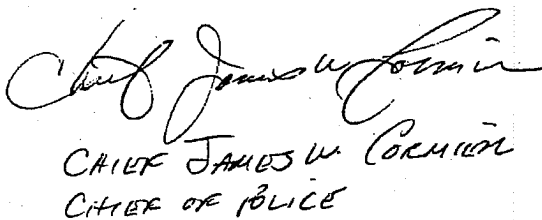 Chief James W Cormier
CHIEF JAMES W. CORMIER
CHIEF OF POLICE